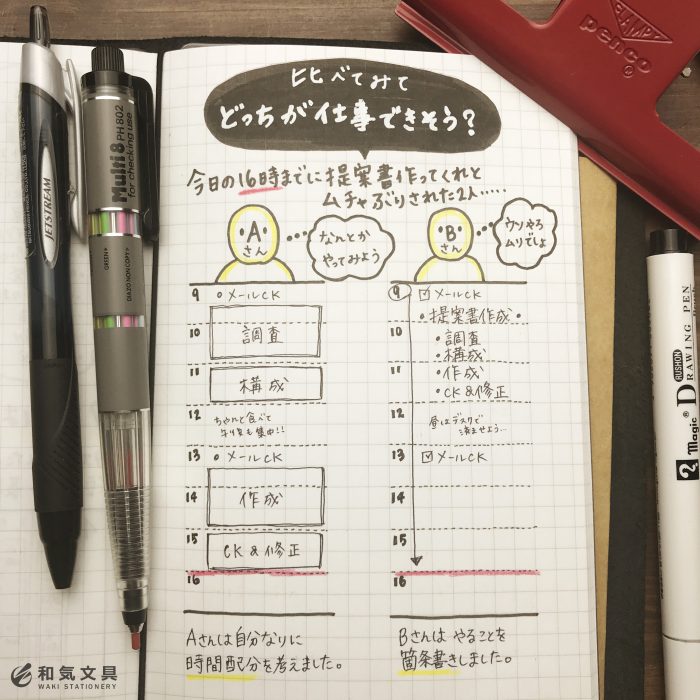 比べてみて
どっちが仕事できそう?
今日の16時までに提案書作ってくれと
ムチャぶりされた2人.....
A
さん
なんとか
やってみよう
9 メールCK
10 調査
11 構成
12 ちゃんと食べて
午後も集中!!
13 メールCK
14 作成
15 CK&修正
16
Aさんは自分なりに
時間配分を考えました。
B
さん
ウソやろ
ムリでしょ
9 メールCK
・提案書作成・
10 ・調査
・構成
11 ・作成
・CK&修正
12 昼はデスクで
済ませよう...
13 メールCK
14
15
16
Bさんは やることを
箇条書きしました。
JETSTREAM
Multi 8 PH802
for checking use
GREEN
DIAZO NON COPY
CLAMPY
penco
KURUSHON
2 magic DRAWING PEN
和気文具
WAKI STATIONERY